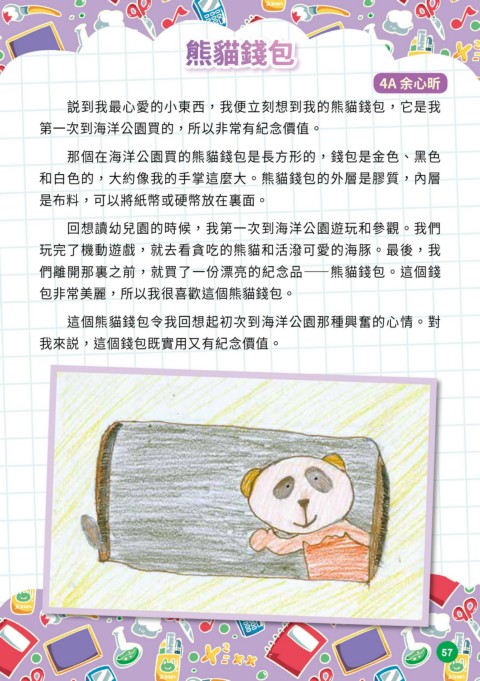 熊貓錢包
4A 余心昕
說到我最心愛的小東西，我便立刻想到我的熊貓錢包，它是我
第一次到海洋公園買的，所以非常有紀念價值。
那個在海洋公園買的熊貓錢包是長方形的，錢包是金色、黑色
和白色的，大約像我的手掌這麼大。熊貓錢包的外層是膠質，內層
是布料，可以將紙幣或硬幣放在裏面。
回想讀幼兒園的時候，我第一次到海洋公園遊玩和參觀。我們
玩完了機動遊戲，就去看貪吃的熊貓和活潑可愛的海豚。最後，我
們離開那裏之前，就買了一份漂亮的紀念品——熊貓錢包。這個錢
包非常美麗，所以我很喜歡這個熊貓錢包。
這個熊貓錢包令我回想起初次到海洋公園那種興奮的心情。對
我來說，這個錢包既實用又有紀念價值。
57